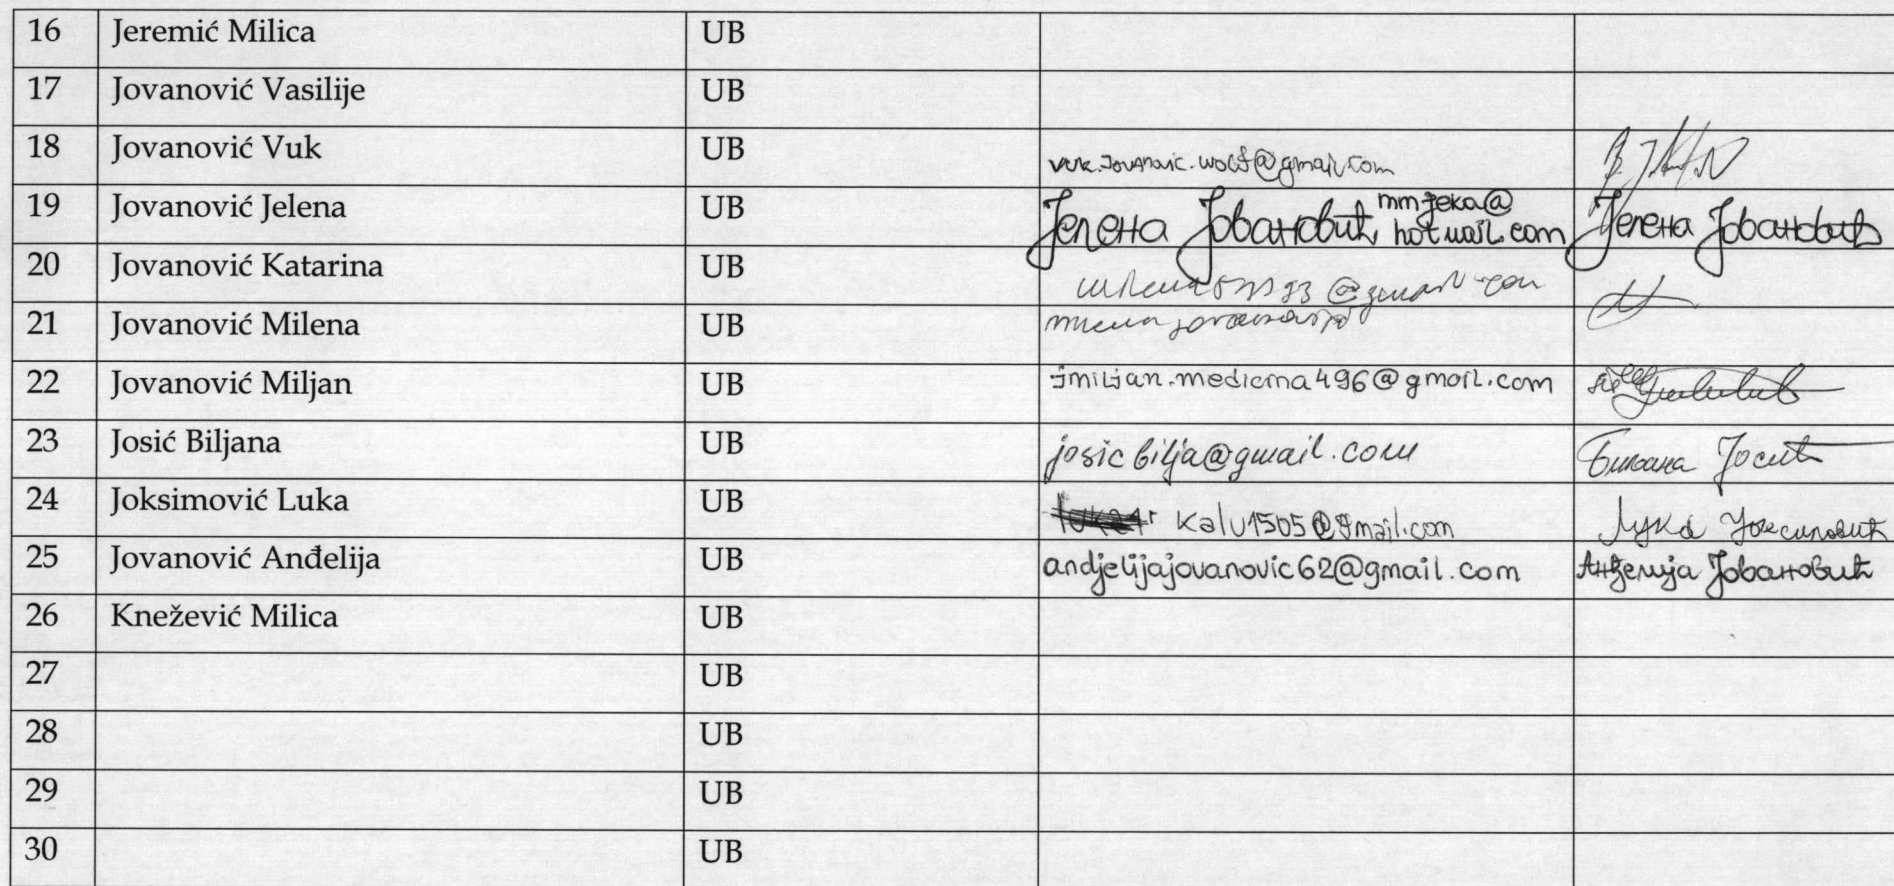 16 Jeremić Milica UB
17 Jovanović Vasilije UB
18 Jovanović Vuk UB vuk.Jovanovic.wolf@gmail.com
19 Jovanović Jelena UB Јелена Јовановић mmjeka@ hotmail.com Јелена Јовановић
20 Jovanović Katarina UB
21 Jovanović Milena UB
22 Jovanović Miljan UB jmiljan.medicina496@gmail.com
23 Josić Biljana UB josicbilja@gmail.com Биљана Јосић
24 Joksimović Luka UB kalu1505@gmail.com Лука Јоксимовић
25 Jovanović Anđelija UB andjelijajovanovic62@gmail.com Анђелија Јовановић
26 Knežević Milica UB
27 UB
28 UB
29 UB
30 UB